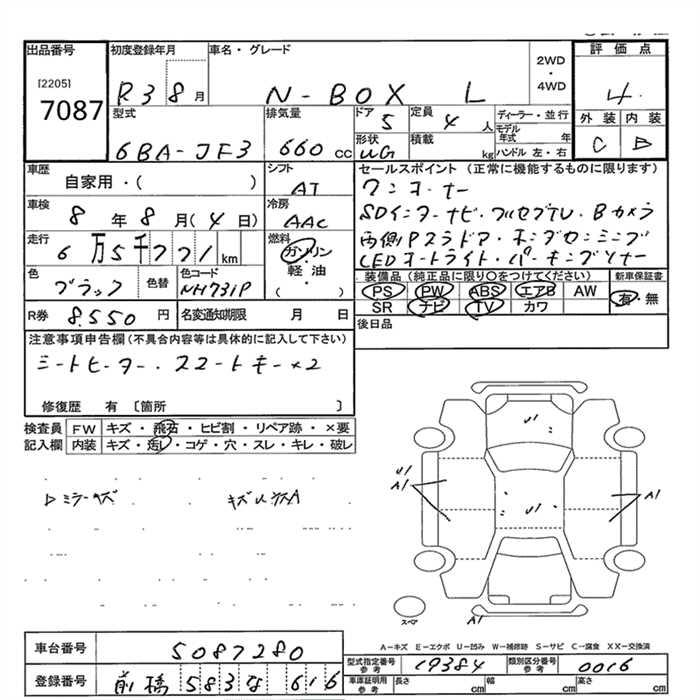 出品番号
[2205]
7087
初度登録年月
R3 8月
車名・グレード
N-BOX L
2WD
・
4WD
評価点
4
外装 内装
C B
型式
6BA-JF3
排気量
660 cc
ドア
5
定員
4 人
形状
UG
積載
kg
ディーラー・並行
モデル年式 年
ハンドル 左・右
車歴
自家用・( )
シフト
AT
車検
8年8月(4日)
冷房
AAC
走行
6万5千771km
燃料
ガソリン
・
軽・油
( )
色
ブラック
色替
色コード
NH731P
R券
8,550円
名変通知期限 月 日
セールスポイント (正常に機能するものに限ります)
ワンオーナー
SDインターナビ・フルセグTV・Bカメラ
両側Pスラドア・ホンダセンシング
LEDオートライト・パーキングソナー
装備品 (純正品に限り○をつけてください)
新車保証書
PS PW ABS エアB AW
有・無
SR ナビ TV カワ
後日品
注意事項申告欄 (不具合内容等は具体的に記入して下さい)
シートヒーター・スマートキー×2
修復歴 有 〔箇所 〕
検査員
記入欄
FW キズ・飛石・ヒビ割・リペア跡・×要
内装 キズ・汚レ・コゲ・穴・スレ・キレ・破レ
ミラーキズ
キズ
U1
U1
A1
U1
A1
A1
スペア
A-キズ E-エクボ U-凹み W-補修跡 S-サビ C-腐食 XX-交換済
車台番号
5087280
登録番号
前橋 583 な 616
型式指定番号
参考
19384
類別区分番号
参考
0016
車庫証明用
参考
長さ cm 幅 cm 高さ cm